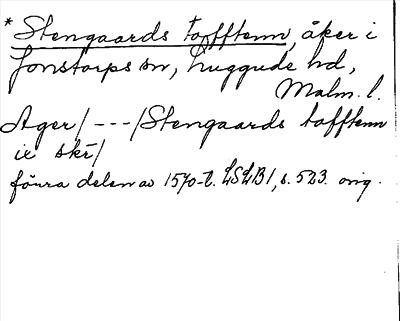 * Stengaards tofftenn, åker i
Jonstorps sn, Luggude hd,
Malm. l.
Ager/---/Stengaards tofftenn
ie skē/
förra delen av 1570-t. LSLB1, s. 523. orig.